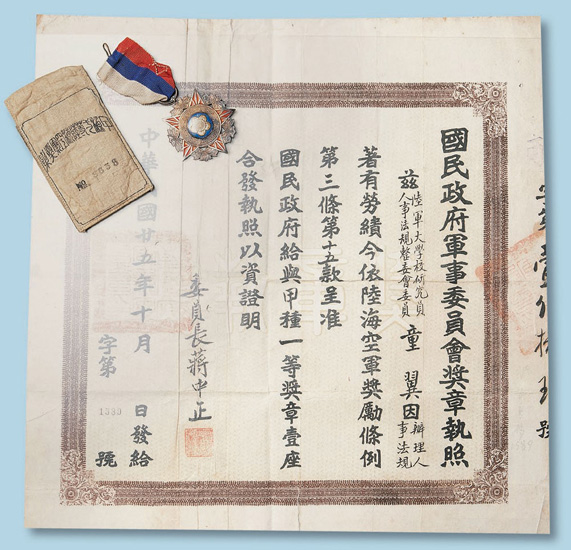 國民政府軍事委員會奬章執照
茲陸軍大學校研究員
人事法規整委會委員
童翼因辦理人
事法規
著有勞績今依陸海空軍奬勵條例
第三條第十五款呈准
國民政府給與甲種一等奬章壹座
合發執照以資證明
委員長蔣中正
中華 國廿五年十月 日發給
字第 1039 號
號
NO.